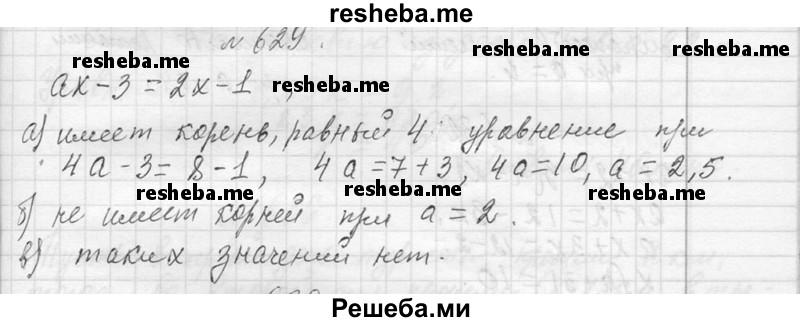 resheba.me
№ 629.
ax-3=2x-1, resheba.me
resheba.me
а) имеет корень, равный 4 уравнение при
4a-3=8-1, 4a=7+3, 4a=10, a=2,5.
resheba.me resheba.me
б) не имеет корней при a=2.
в) таких значений нет.
resheba.me
Решеба.ми